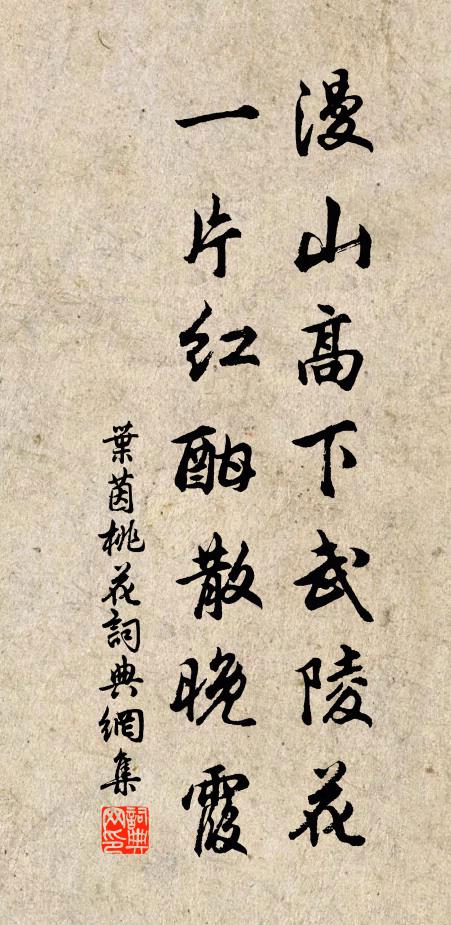 漫山高下武陵花
一片红酣散晚霞
葉茵桃花詞典網集
詞典網印